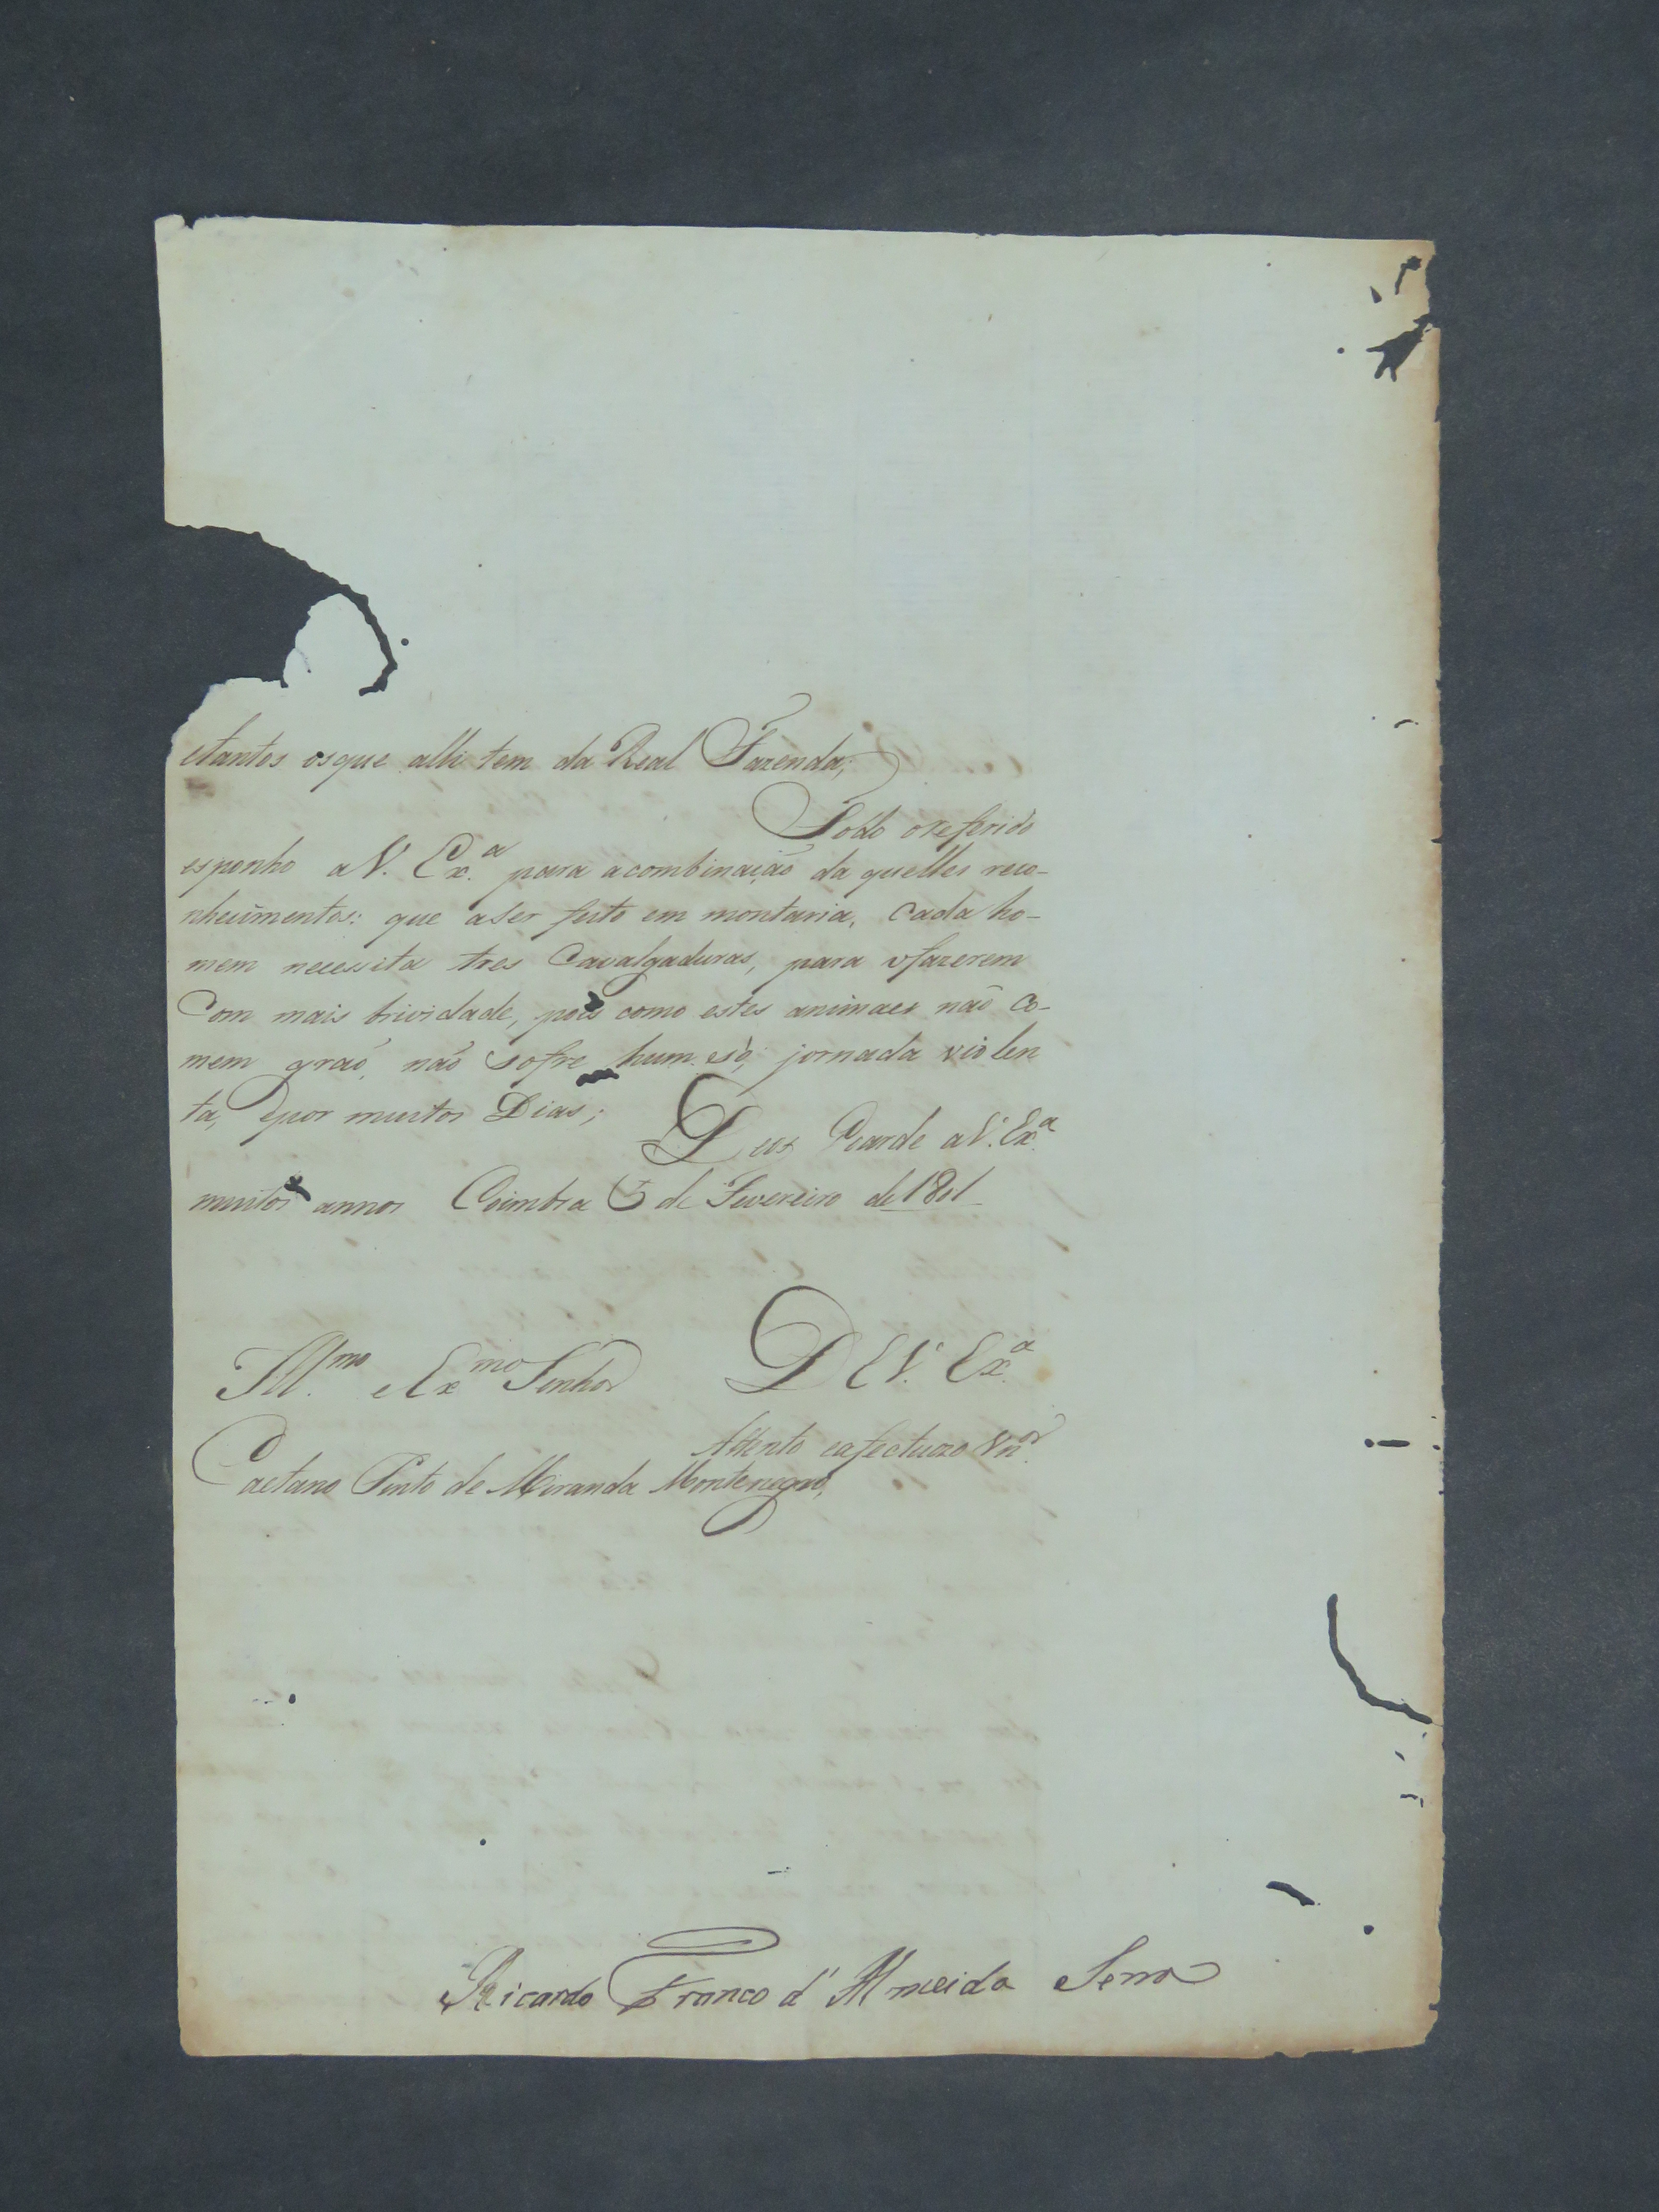 etantos osque alli tem da Real Fazenda;
Todo oreferido
esponho aV. Ex.ª para acombinação da quelles reco-
nhecimentos: que aser feito em montaria, cada ho-
mem necessita tres Cavalgaduras, para ofazerem
Com mais brividade, pois como estes animaes não co-
mem grão, não sofre hum só, jornada violen
ta, epor muitos Dias;
Deos Guarde aV. Ex.ª
muitos annos Coimbra 5 de Fevereiro de 1801
Ill.mo eEx.mo Senhor DEV. Ex.ª
Attento eafectuozo V.or
Caetano Pinto de Miranda Montenegro,
Ricardo Franco d'Almeida Serra